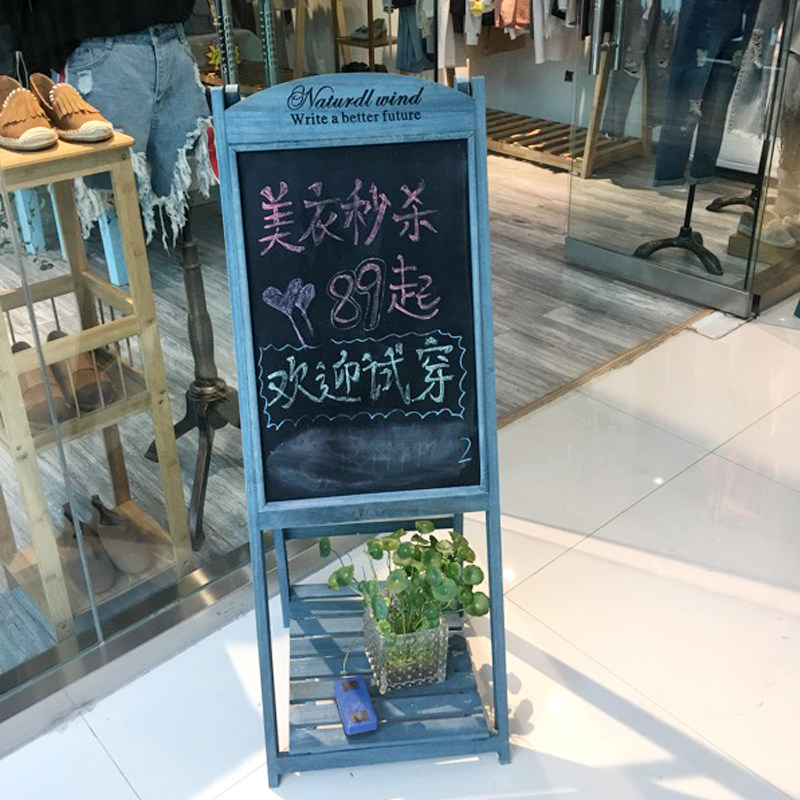 Naturdl wind
Write a better future
美衣秒杀
89起
欢迎试穿
2